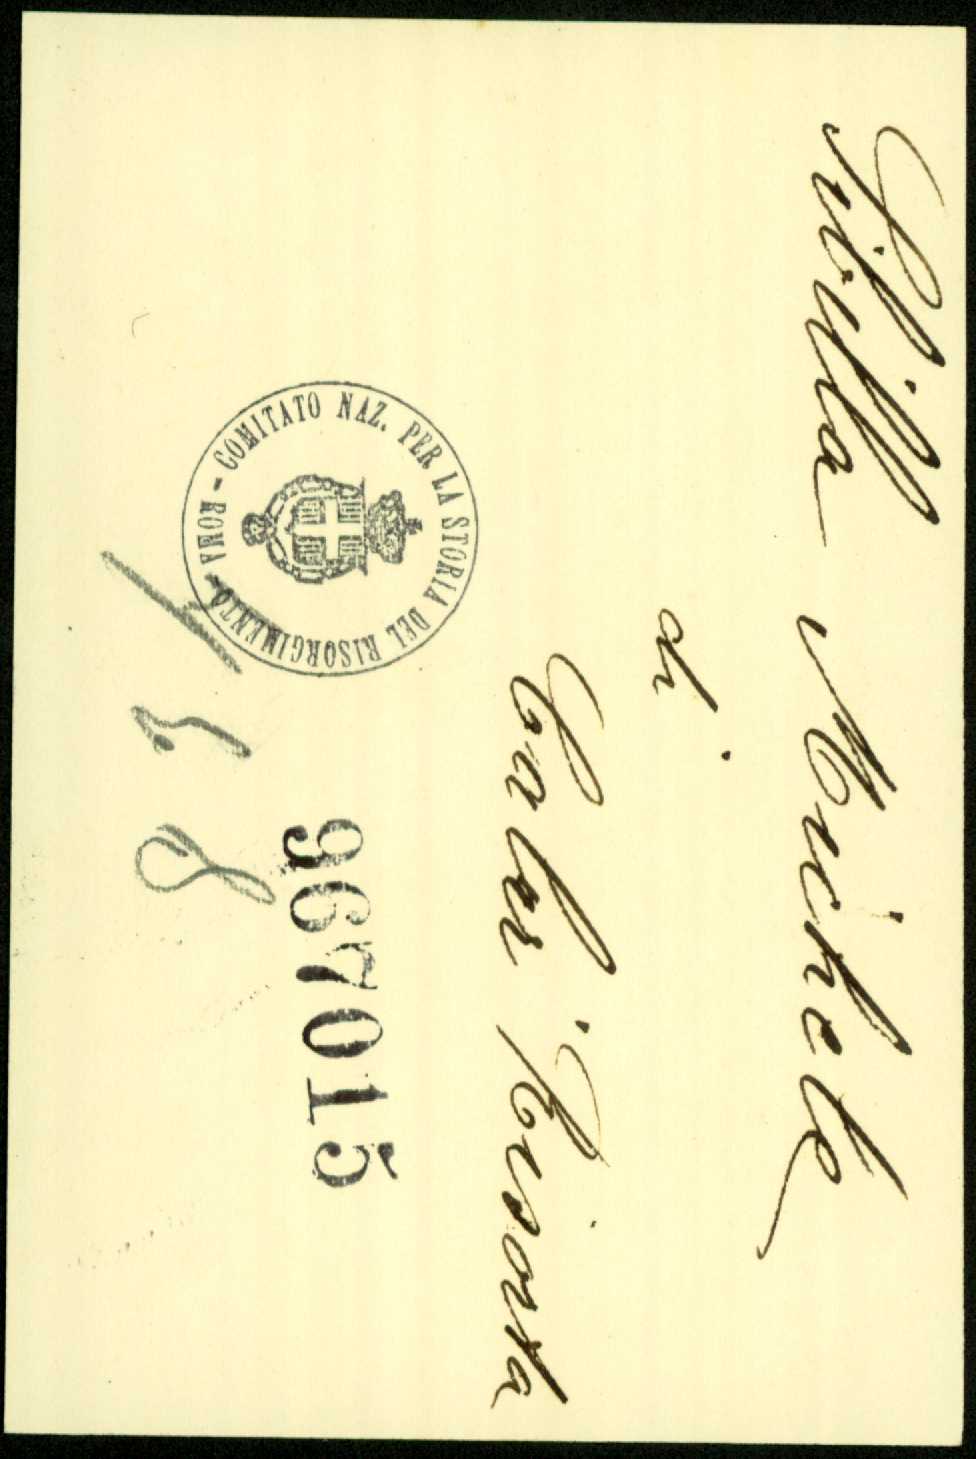 Sibilla Michele
di
Calvi Risorta
COMITATO NAZ. PER LA STORIA DEL RISORGIMENTO - ROMA -
967015